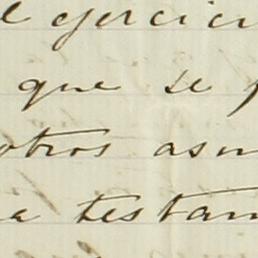 ejercici
que se
otros asun
a testam